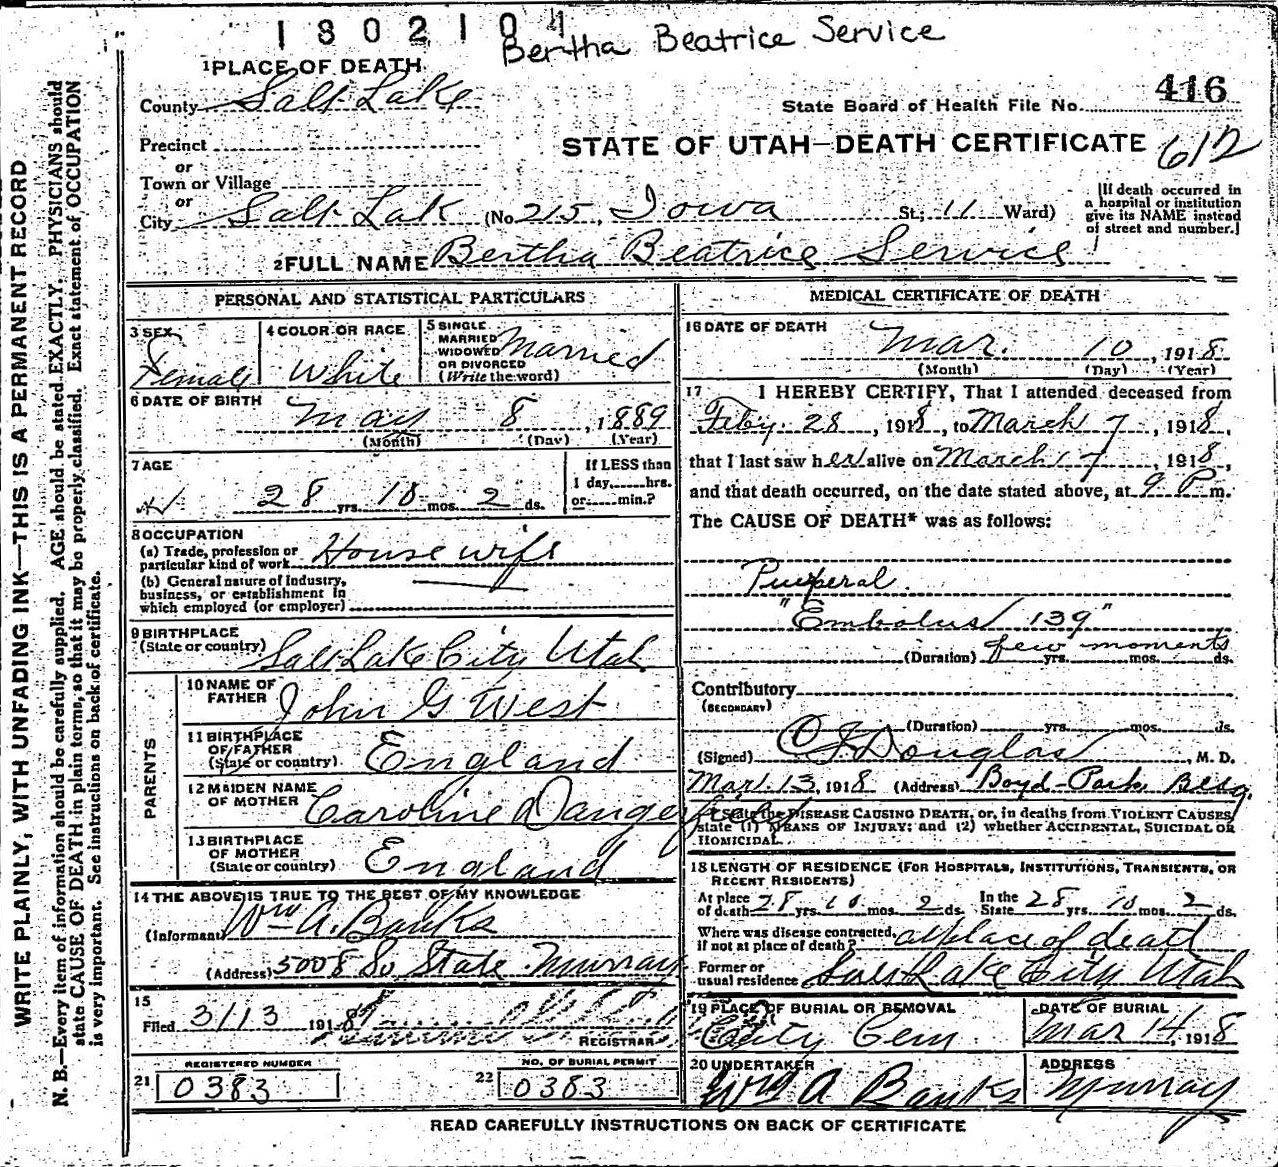 1802104
Bertha Beatrice Service
1 PLACE OF DEATH
County Salt Lake
State Board of Health File No. 416
Precinct
STATE OF UTAH—DEATH CERTIFICATE 612
or
Town or Village
or
City Salt Lak (No 215, Iowa St; 11 Ward)
[If death occurred in
a hospital or institution
give its NAME instead
of street and number.]
2 FULL NAME Bertha Beatrice Service
PERSONAL AND STATISTICAL PARTICULARS
3 SEX
Female
4 COLOR OR RACE
White
5 SINGLE
MARRIED
WIDOWED
OR DIVORCED
(Write the word)
Married
6 DATE OF BIRTH
May 8, 1889
(Month) (Day) (Year)
7 AGE
28 yrs. 10 mos. 2 ds.
If LESS than
1 day, hrs.
or min.?
8 OCCUPATION
(a) Trade, profession or
particular kind of work House wife
(b) General nature of industry,
business, or establishment in
which employed (or employer)
9 BIRTHPLACE
(State or country) Salt Lake City Utah
PARENTS
10 NAME OF
FATHER John G West
11 BIRTHPLACE
OF FATHER
(State or country) England
12 MAIDEN NAME
OF MOTHER Caroline Dangerfield
13 BIRTHPLACE
OF MOTHER
(State or country) England
14 THE ABOVE IS TRUE TO THE BEST OF MY KNOWLEDGE
(Informant) Wm A. Banks
(Address) 5008 So State Murray
15
Filed 3/13 1918
REGISTRAR
REGISTERED NUMBER
21 0383
NO. OF BURIAL PERMIT
22 0383
MEDICAL CERTIFICATE OF DEATH
16 DATE OF DEATH
Mar. 10, 1918
(Month) (Day) (Year)
17 I HEREBY CERTIFY, That I attended deceased from
Feby. 28, 1918, to March 7, 1918,
that I last saw her alive on March 7, 1918,
and that death occurred, on the date stated above, at 9 P m.
The CAUSE OF DEATH* was as follows:
Puerperal
"Embolus 139"
(Duration) few moments yrs. mos. ds.
Contributory
(SECONDARY)
(Duration) yrs. mos. ds.
(Signed) O J Douglas, M. D.
Mar. 13, 1918 (Address) Boyd-Park Bldg.
* State the DISEASE CAUSING DEATH, or, in deaths from VIOLENT CAUSES,
state (1) MEANS OF INJURY; and (2) whether ACCIDENTAL, SUICIDAL OR
HOMICIDAL.
18 LENGTH OF RESIDENCE (FOR HOSPITALS, INSTITUTIONS, TRANSIENTS, OR
RECENT RESIDENTS)
At place
of death 28 yrs. 10 mos. 2 ds.
In the
State 28 yrs. 10 mos. 2 ds.
Where was disease contracted,
if not at place of death? at place of death
Former or
usual residence Salt Lake City Utah
19 PLACE OF BURIAL OR REMOVAL
City Cem
DATE OF BURIAL
Mar 14, 1918
20 UNDERTAKER
Wm A Banks
ADDRESS
Murray
READ CAREFULLY INSTRUCTIONS ON BACK OF CERTIFICATE
WRITE PLAINLY, WITH UNFADING INK—THIS IS A PERMANENT RECORD
N. B.—Every item of information should be carefully supplied. AGE should be stated EXACTLY. PHYSICIANS should
state CAUSE OF DEATH in plain terms, so that it may be properly classified. Exact statement of OCCUPATION
is very important. See instructions on back of certificate.